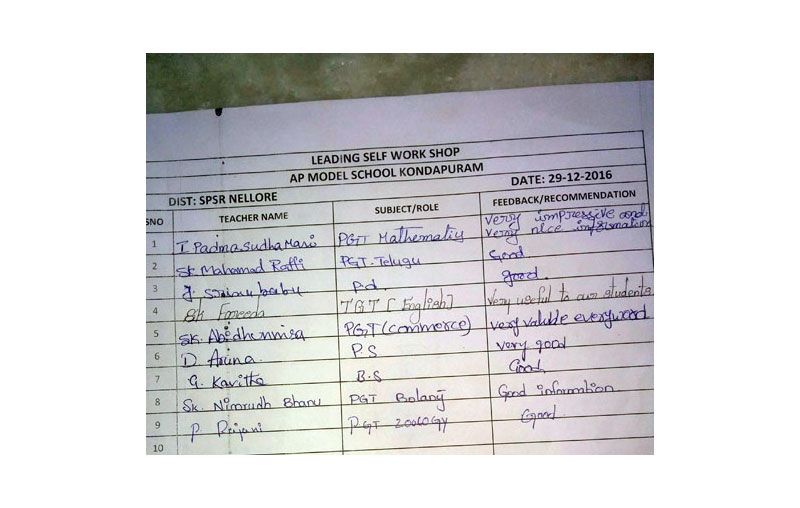 LEADING SELF WORK SHOP
AP MODEL SCHOOL KONDAPURAM
DIST: SPSR NELLORE DATE: 29-12-2016
SNO TEACHER NAME SUBJECT/ROLE FEEDBACK/RECOMMENDATION
1 T. Padma Sudha Mani PGT Mathematics Very impressive and
very nice information
2 SK. Mahamad Raffi PGT. Telugu Good
3 J. Srinu babu P.d. good.
4 Fareeda TGT [English] Very useful to our students
5 SK. Abidhennisa PGT (commerce) very valuble everyword
6 D. Aruna. P.S very good
7 G. Kavitha B.S Good.
8 Sk. Nimrudh Bhanu PGT Botany Good information.
9 P Rajani PGT ZOOLOGY Good.
10